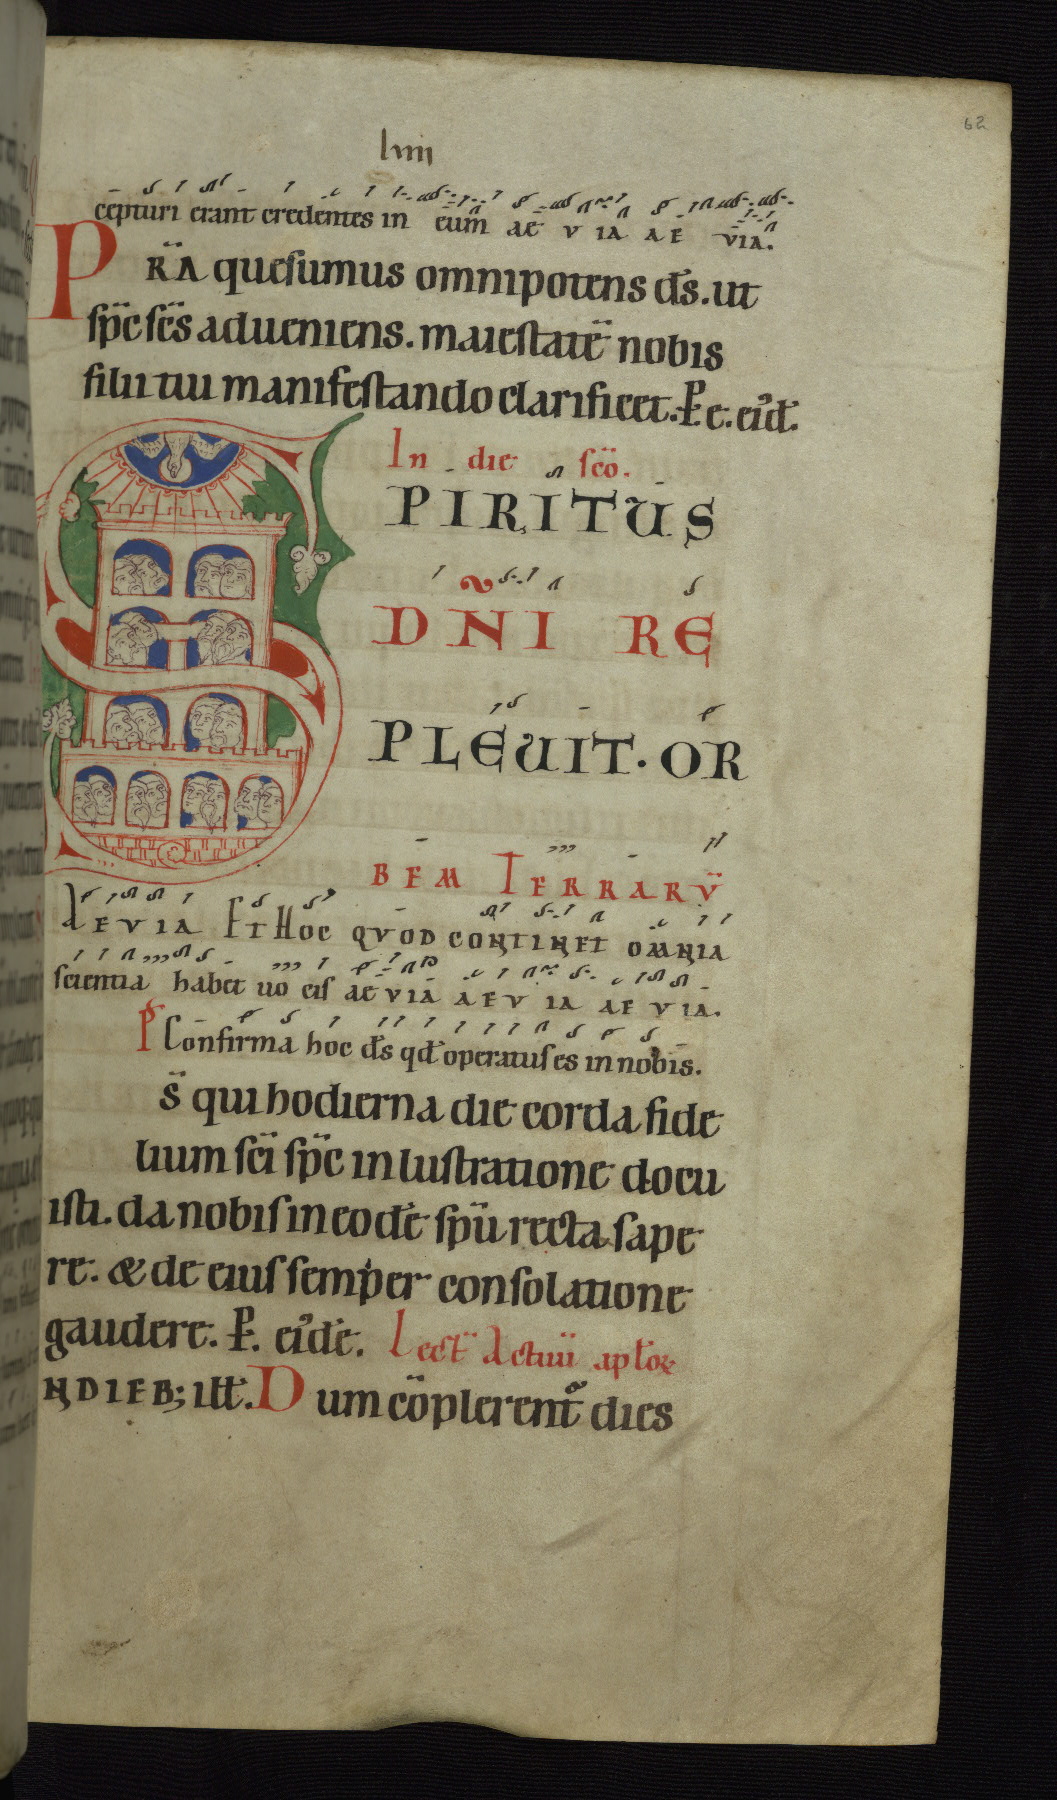 62
lviii
cepturi erant credentes in eum ae v ia ae via.
P R̄A quesumus omnipotens ds̄. ut
sp̄c sc̄s adueniens. maiestatē nobis
filii tui manifestando clarificet. P. e. eid̄.
In die sc̄o.
PIRITUS
DN̄I RE
PLEUIT. OR
BEM TERRARŪ
AEVIA ET HOC QUOD CONTINET OMNIA
scientia habet uo cis ae via aev ia ae via.
P Confirma hoc ds̄ qd̄ operatus es in nobis.
s̄ qui hodierna die corda fide
lium sc̄i sp̄c inlustratione docu
isti. da nobis in eodē sp̄u recta sape
re. & de eius semper consolatione
gaudere. P. eidē. Lect̄ Actuū apl̄oꝝ
NDIEB; ill̄. Dum cōplerent᷑ dies